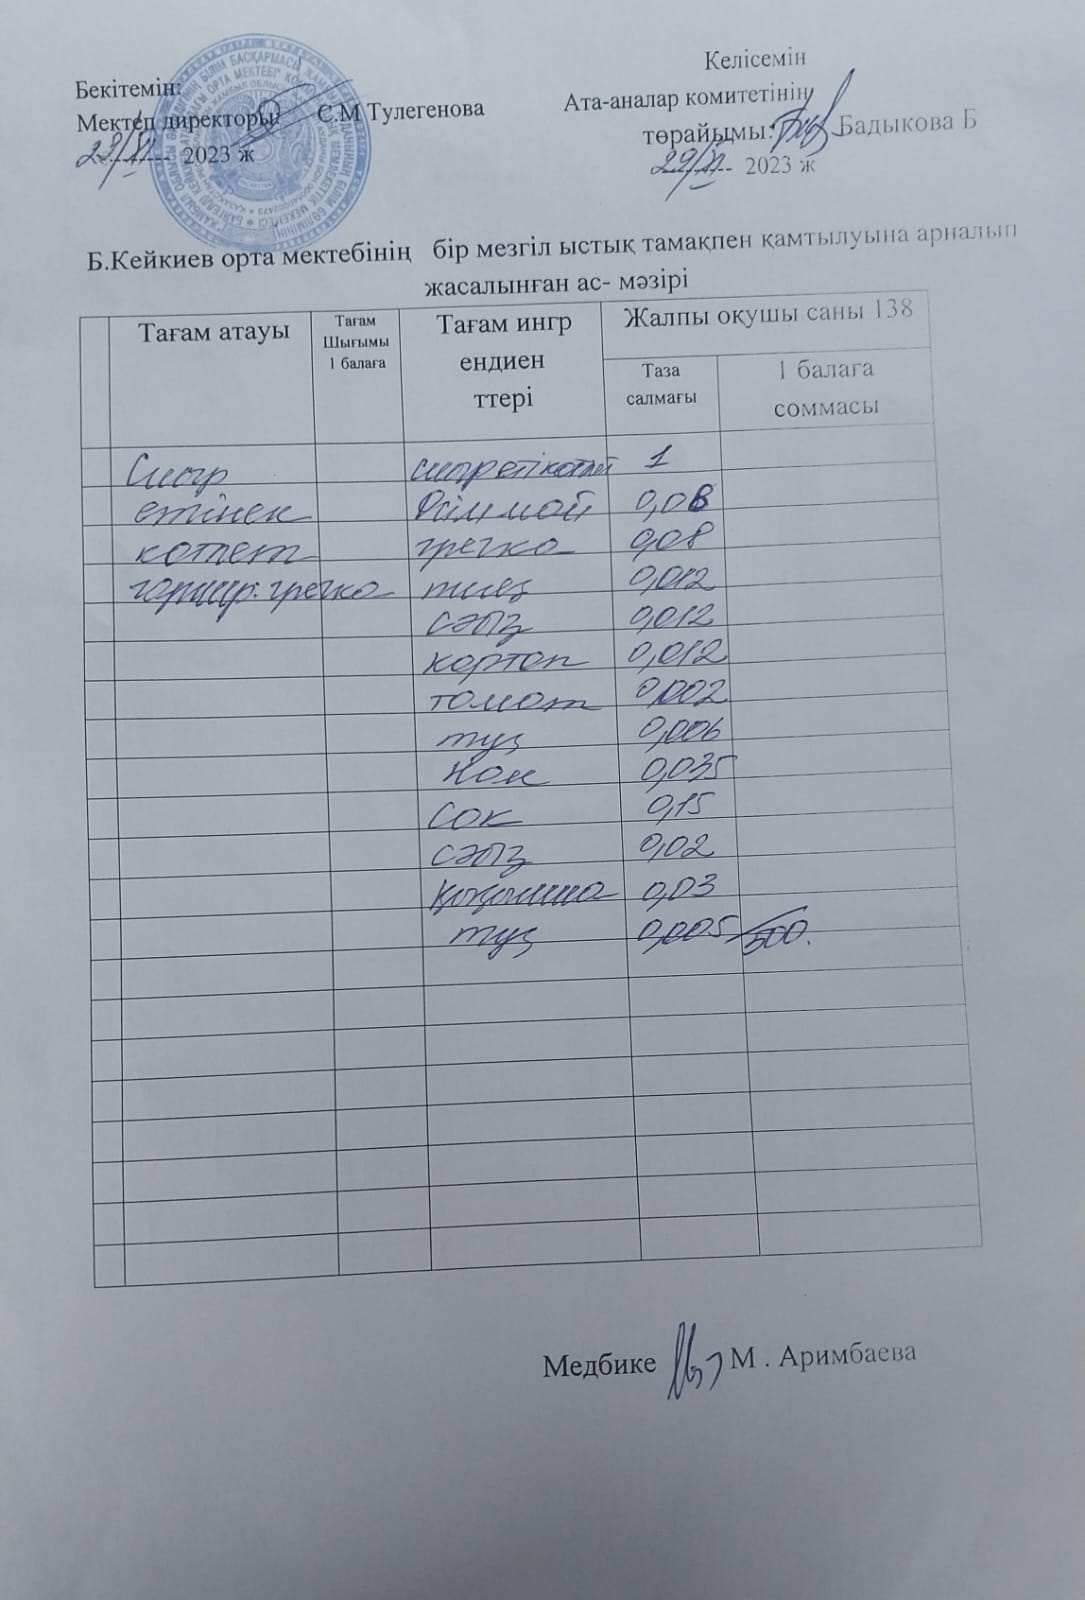 Бекітемін:
Мектеп директоры: С.М Тулегенова
29/XI-- 2023 ж
Келісемін
Ата-аналар комитетінің
төрайымы: Бадыкова Б
29/XI-- 2023 ж
Б.Кейкиев орта мектебінің бір мезгіл ыстық тамақпен қамтылуына арналып
жасалынған ас- мәзірі
Тағам атауы
Тағам
Шығымы
1 балаға
Тағам ингр
ендиен
ттері
Жалпы оқушы саны 138
Таза
салмағы
1 балаға
соммасы
Сиыр сиыр еті котлет 1
етінен Өсім май 0,08
котлет гречка 0,08
гарнир. гречка пияз 0,012
сәбіз 0,012
картоп 0,012
томат 0,002
тұз 0,006
Нан 0,035
сок 0,15
сәбіз 0,02
0,03
тұз 0,005 500.
Медбике М . Аримбаева